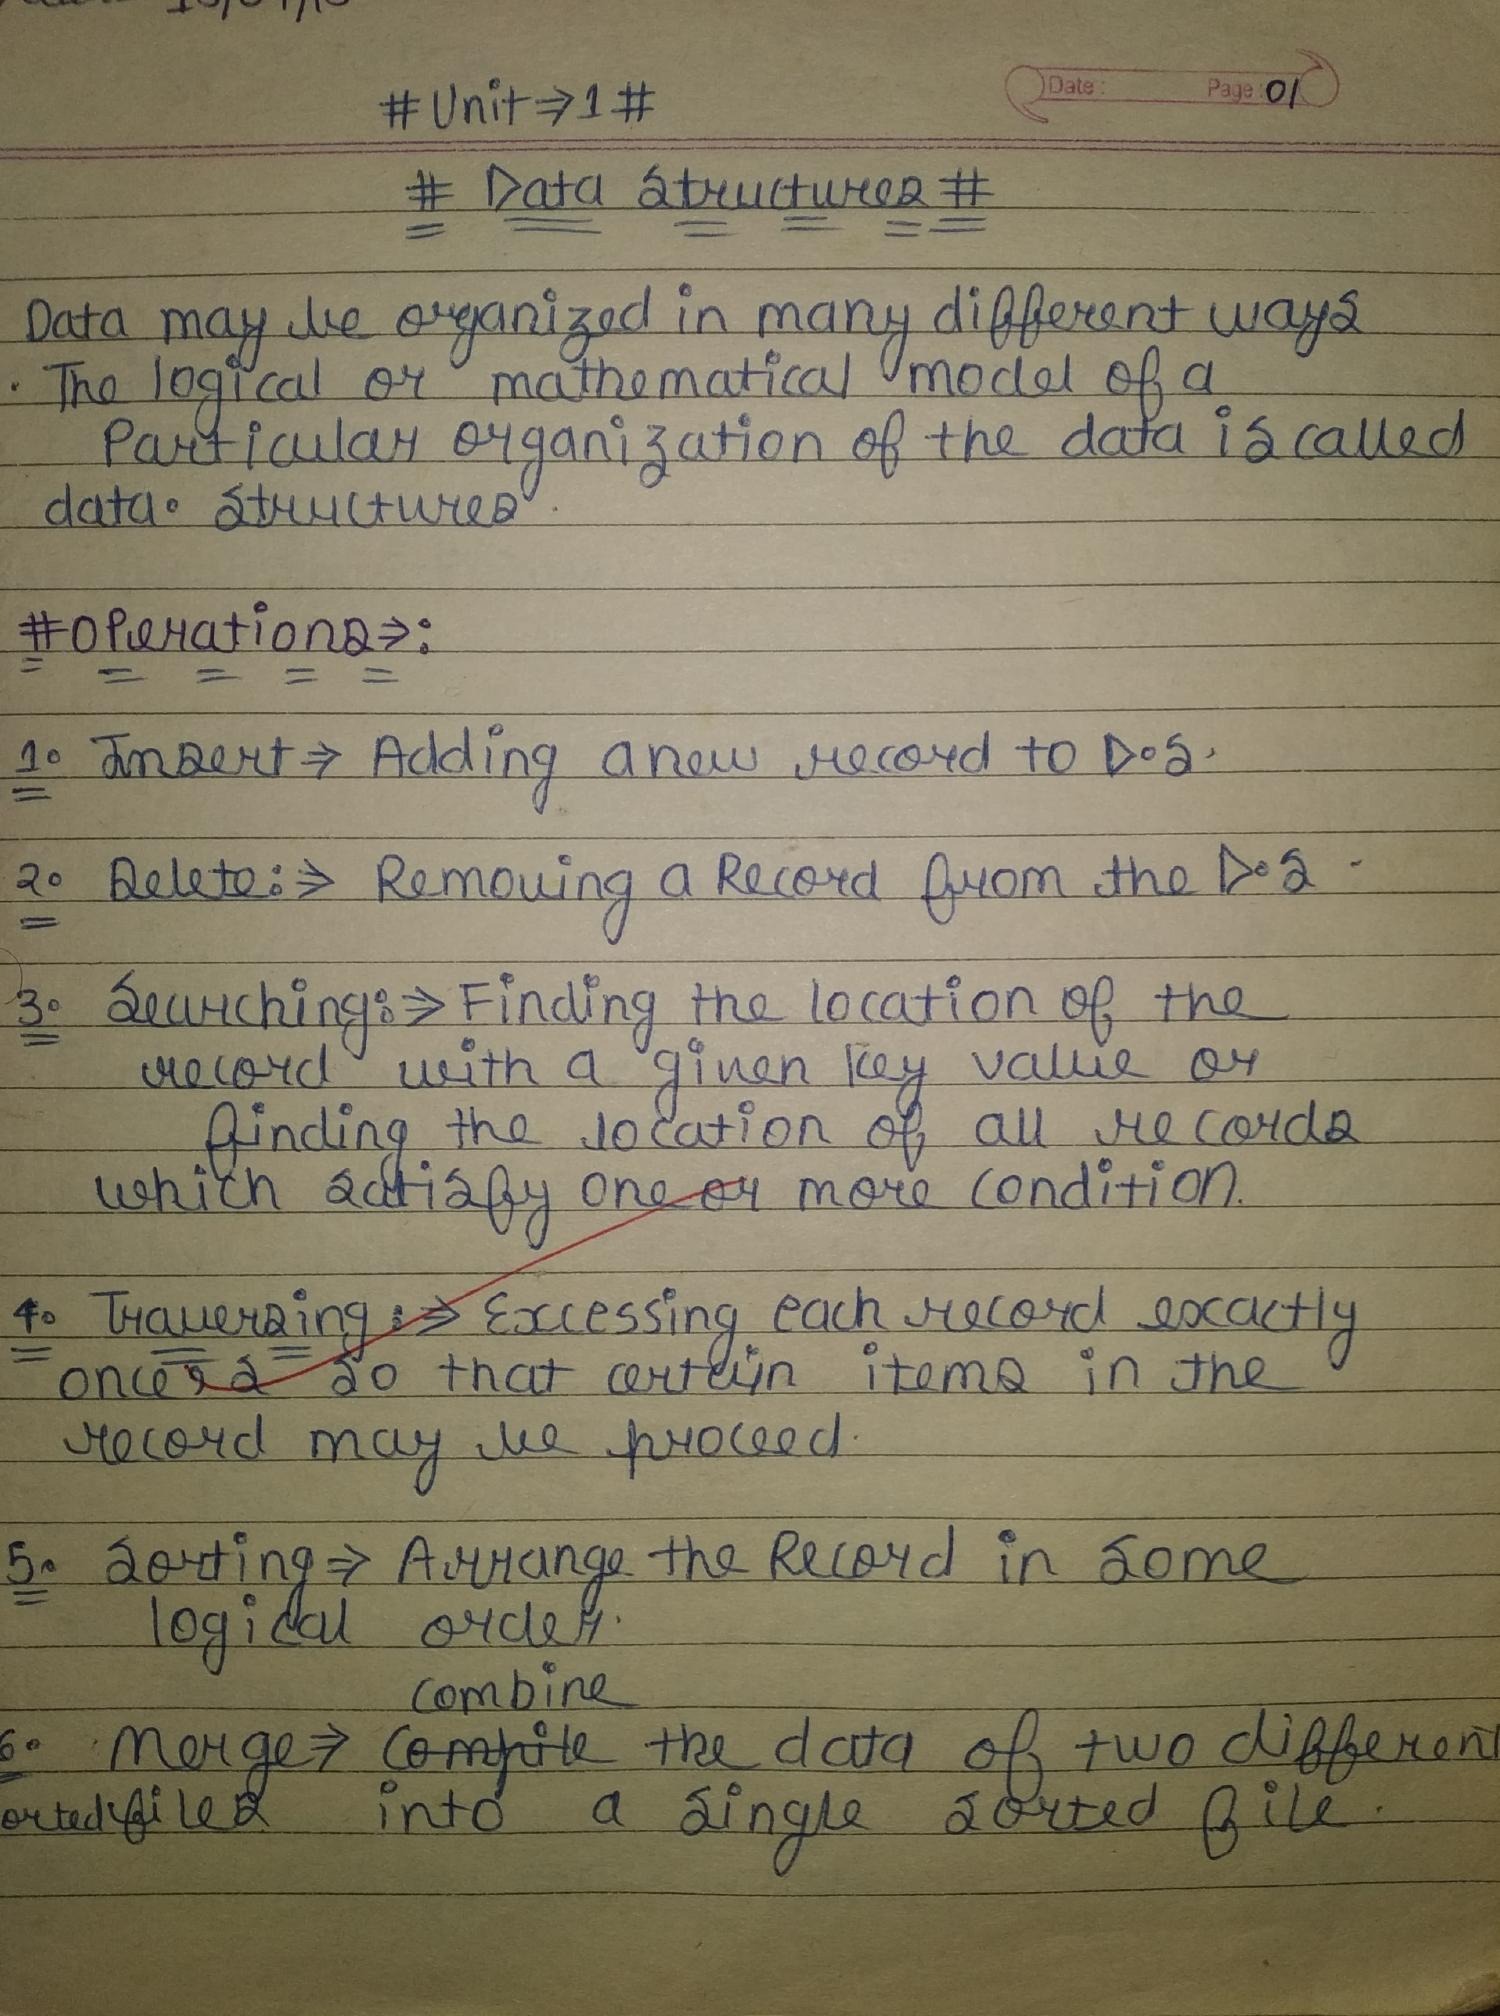 # Unit ⇒ 1 #
Date : Page : 01
# Data Structures #
Data may be organized in many different ways
. The logical or mathematical model of a
Particular organization of the data is called
data. Structures.
# Operations ⇒:
1. Insert ⇒ Adding a new record to D.S.
2. Delete :⇒ Removing a Record from the D.S
3. Searching :⇒ Finding the location of the
record with a given key value or
finding the location of all records
which satisfy one or more condition.
4. Traversing :⇒ Excessing each record exactly
once so that certain items in the
record may be proceed.
5. Sorting ⇒ Arrange the Record in some
logical order.
combine
6. Merge ⇒ the data of two different
orted files into a single sorted file.